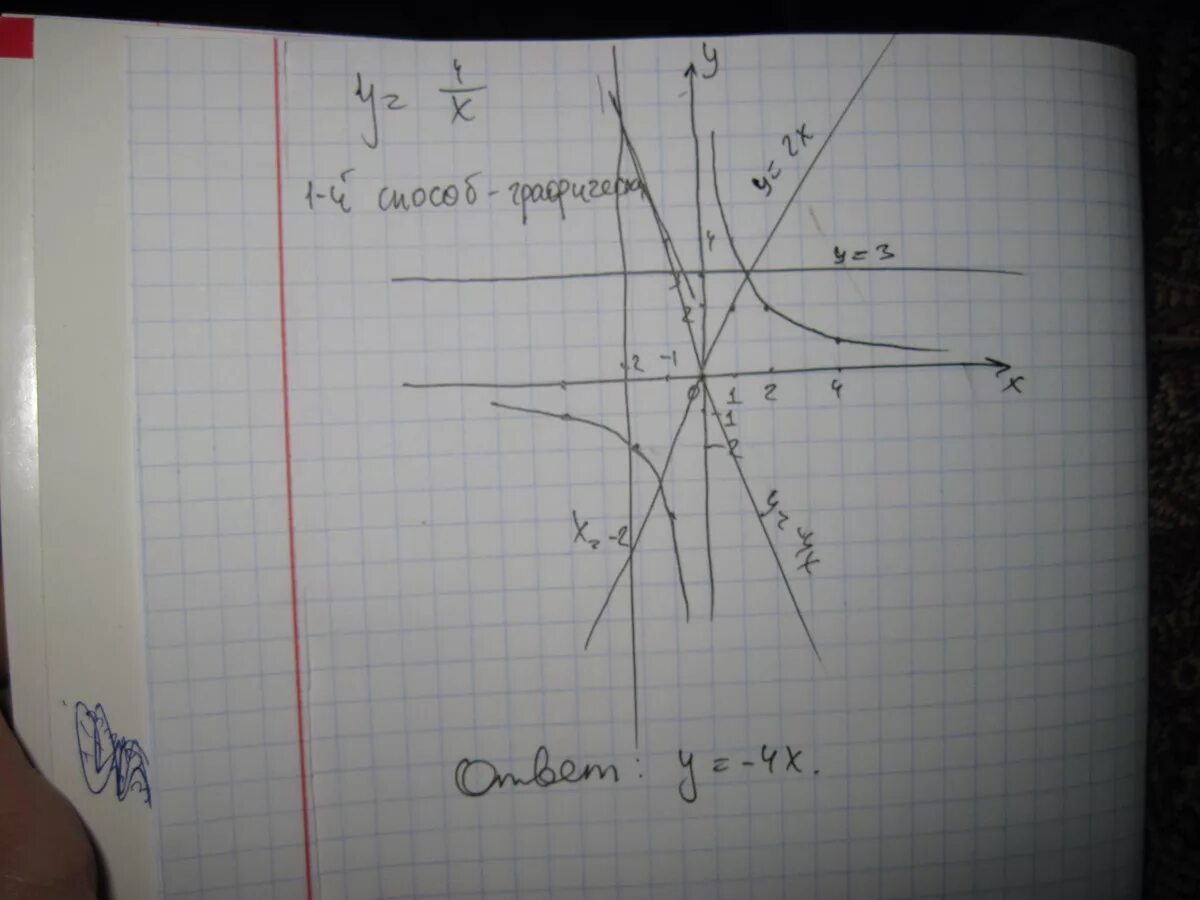 y = 4/x
y
1-й способ - графическ
y = 2x
4
y = 3
2
-2 -1 0 1 2 4 x
-1
-2
x = -2
y = -4x
Ответ: y = -4x.